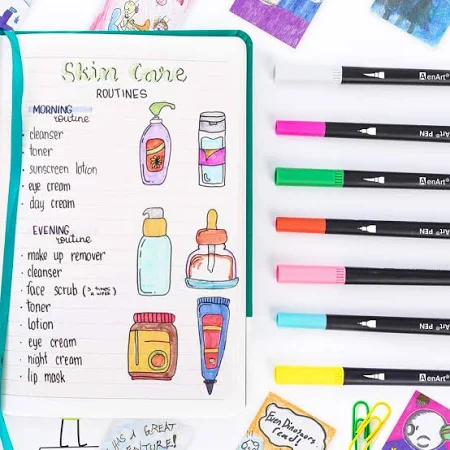 Skin Care
ROUTINES
MORNING
routine
cleanser
toner
sunscreen lotion
eye cream
day cream
EVENING
routine
make up remover
cleanser
face scrub
toner
lotion
eye cream
night cream
lip mask
AenArt®
PEN
AenArt®
PEN
AenArt®
PEN
AenArt®
Even Dinosaurs
read!
HAS A GREAT